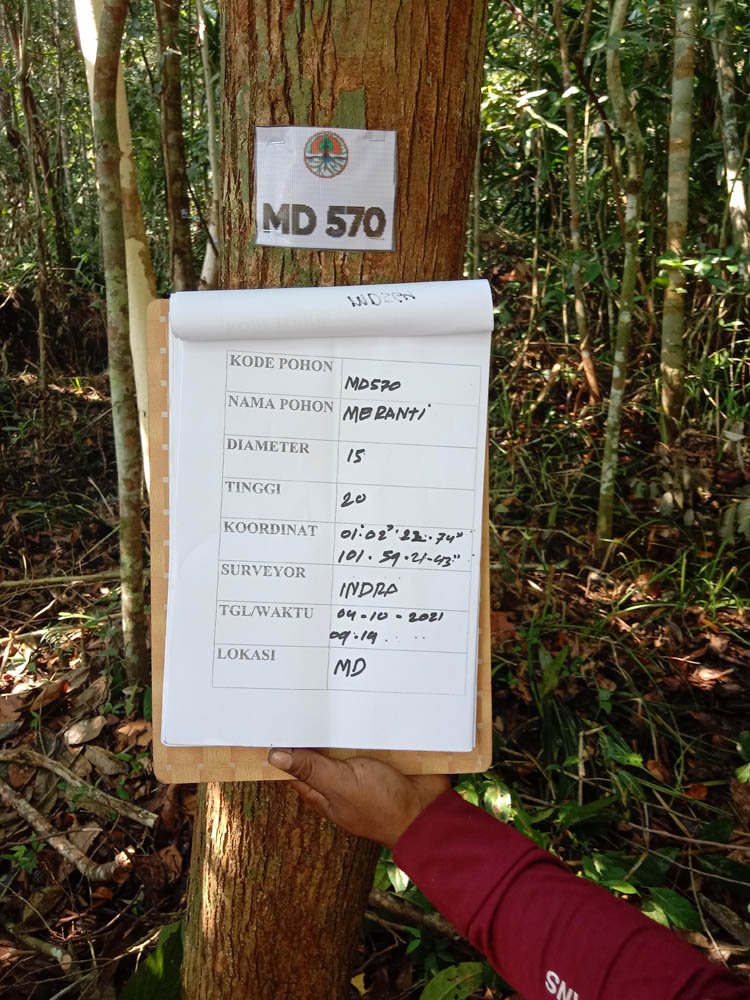 MD 570
MD570
KODE POHON MD570
NAMA POHON MERANTi
DIAMETER 15
TINGGI 20
KOORDINAT 01°02°.22.74"
101.59.21.43"
SURVEYOR INDRA
TGL/WAKTU 04-10-2021
09.19
LOKASI MD